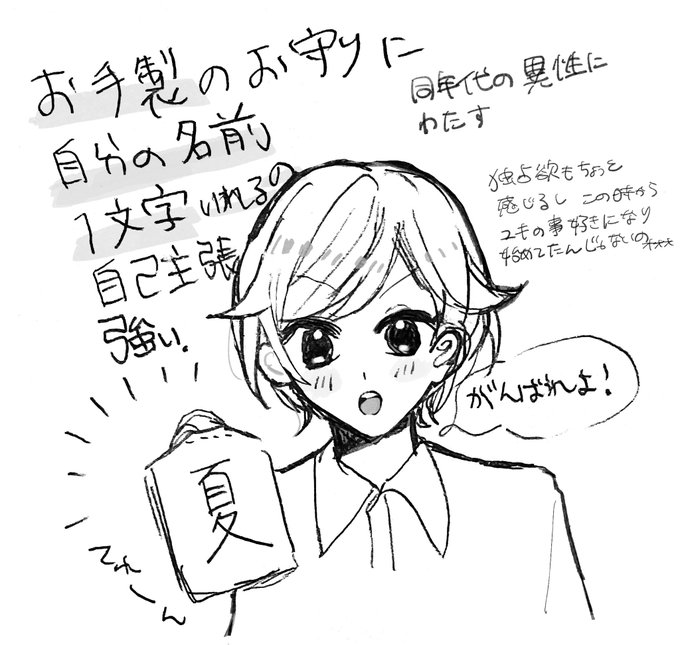 お手製のお守りに
自分の名前
1文字いれるの
自己主張
強い.
同年代の異性に
わたす
独占欲もちょっと
感じるし この時から
ユキの事好きになり
始めてたんじゃないの
がんばれよ!
夏
てれーん